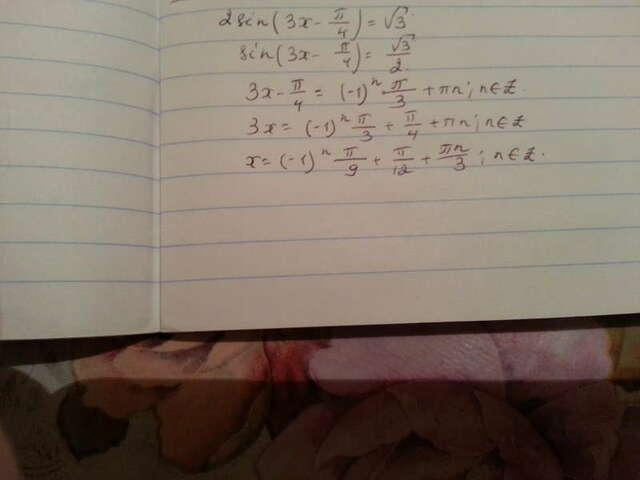 2sin(3x - π/4) = √3.
sin(3x - π/4) = √3/2.
3x - π/4 = (-1)ⁿ π/3 + πn; n∈Z.
3x = (-1)ⁿ π/3 + π/4 + πn; n∈Z
x = (-1)ⁿ π/9 + π/12 + πn/3; n∈Z.